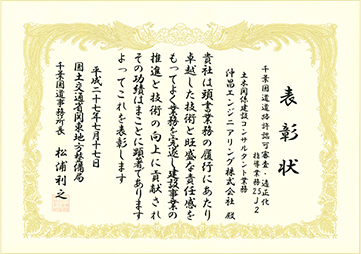 表彰状
千葉国道道路許認可審査・適正化
指導業務25J2
土木関係建設コンサルタント業務
沖昌エンジニアリング株式会社 殿
貴社は頭書業務の履行にあたり
卓越した技術と旺盛な責任感を
もってよく業務を完遂し建設事業の
推進と技術の向上に貢献され
その功績はまことに顕著であります
よってこれを表彰します
平成二十七年七月十七日
国土交通省関東地方整備局
千葉国道事務所長 松浦利之